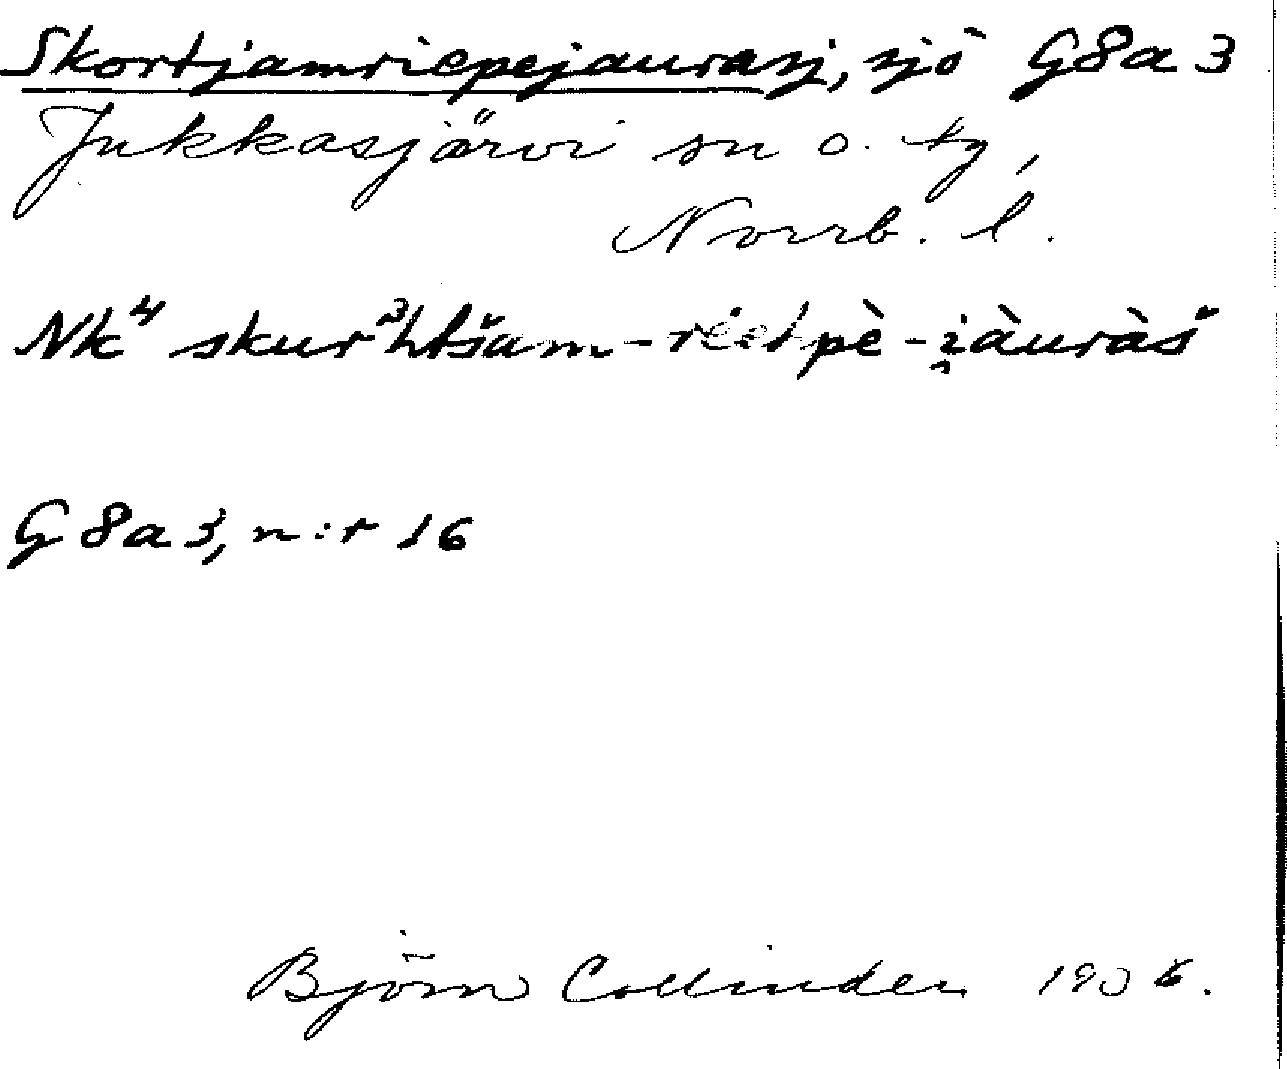 Skortjamriepejaurasj, sjö G8a3
Jukkasjärvi sn o. tg,
Norrb. l.
Nk⁴ skur²htšam-rietpè-i̯àuràš
G8a3, n:r 16
Björn Collinder 1936.